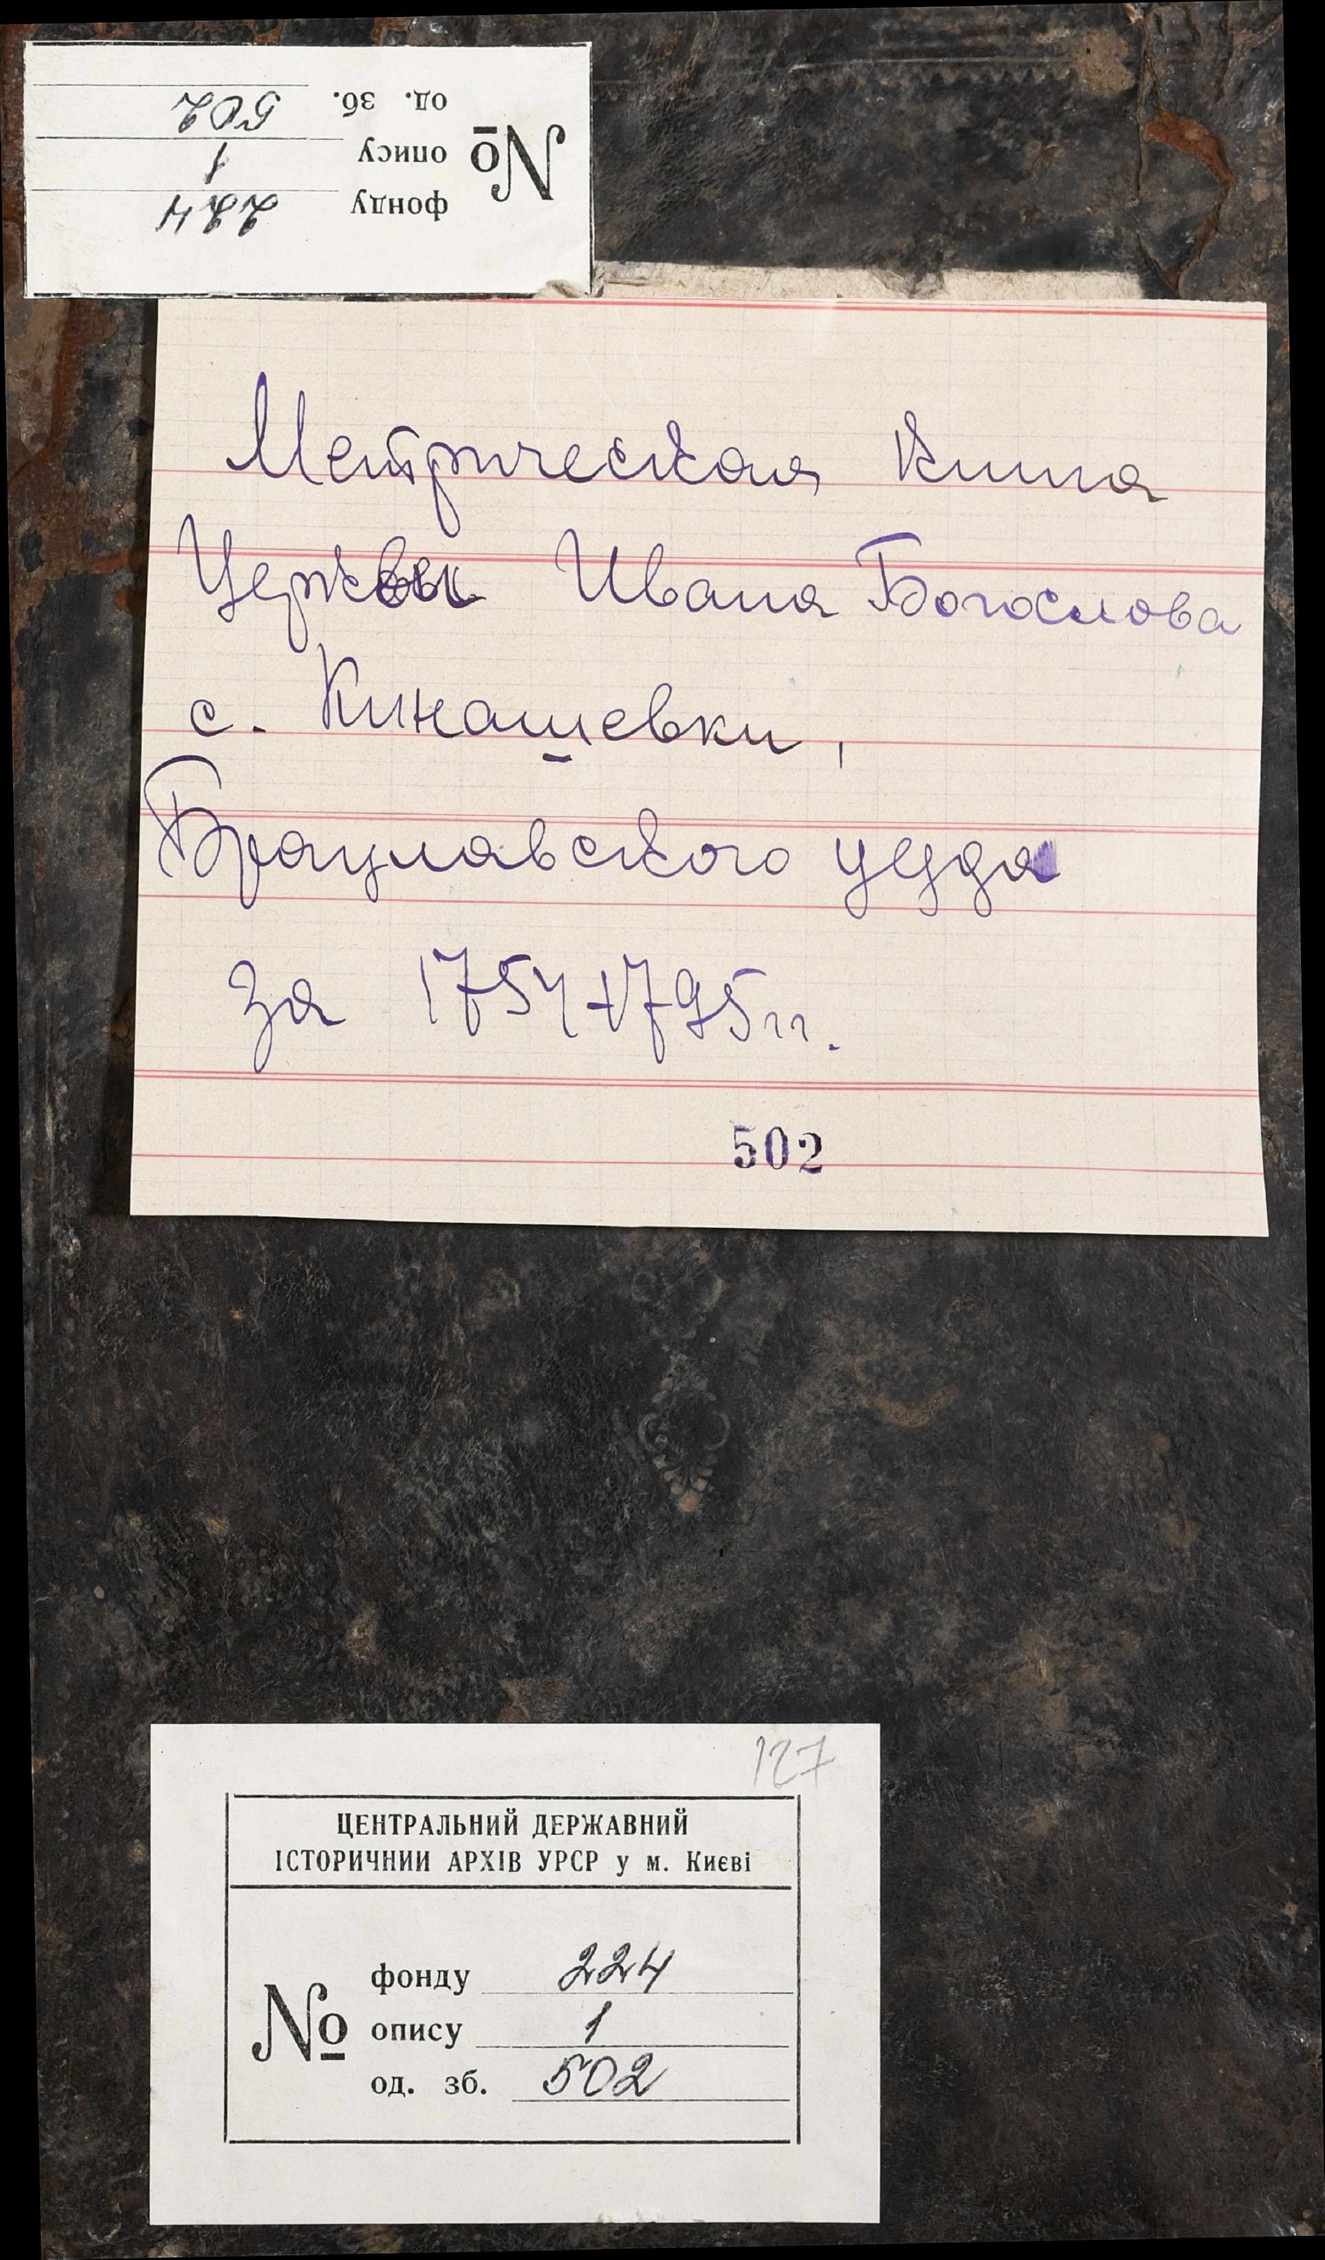 №
фонду 224
опису 1
од. зб. 502
Метрическая книга
Церквы Ивана Богослова
с. Кинашевки,
Брацлавского уезда
за 1754-1795 гг.
502
127
ЦЕНТРАЛЬНИЙ ДЕРЖАВНИЙ
ІСТОРИЧНИЙ АРХІВ УРСР у м. Києві
№
фонду 224
опису 1
од. зб. 502